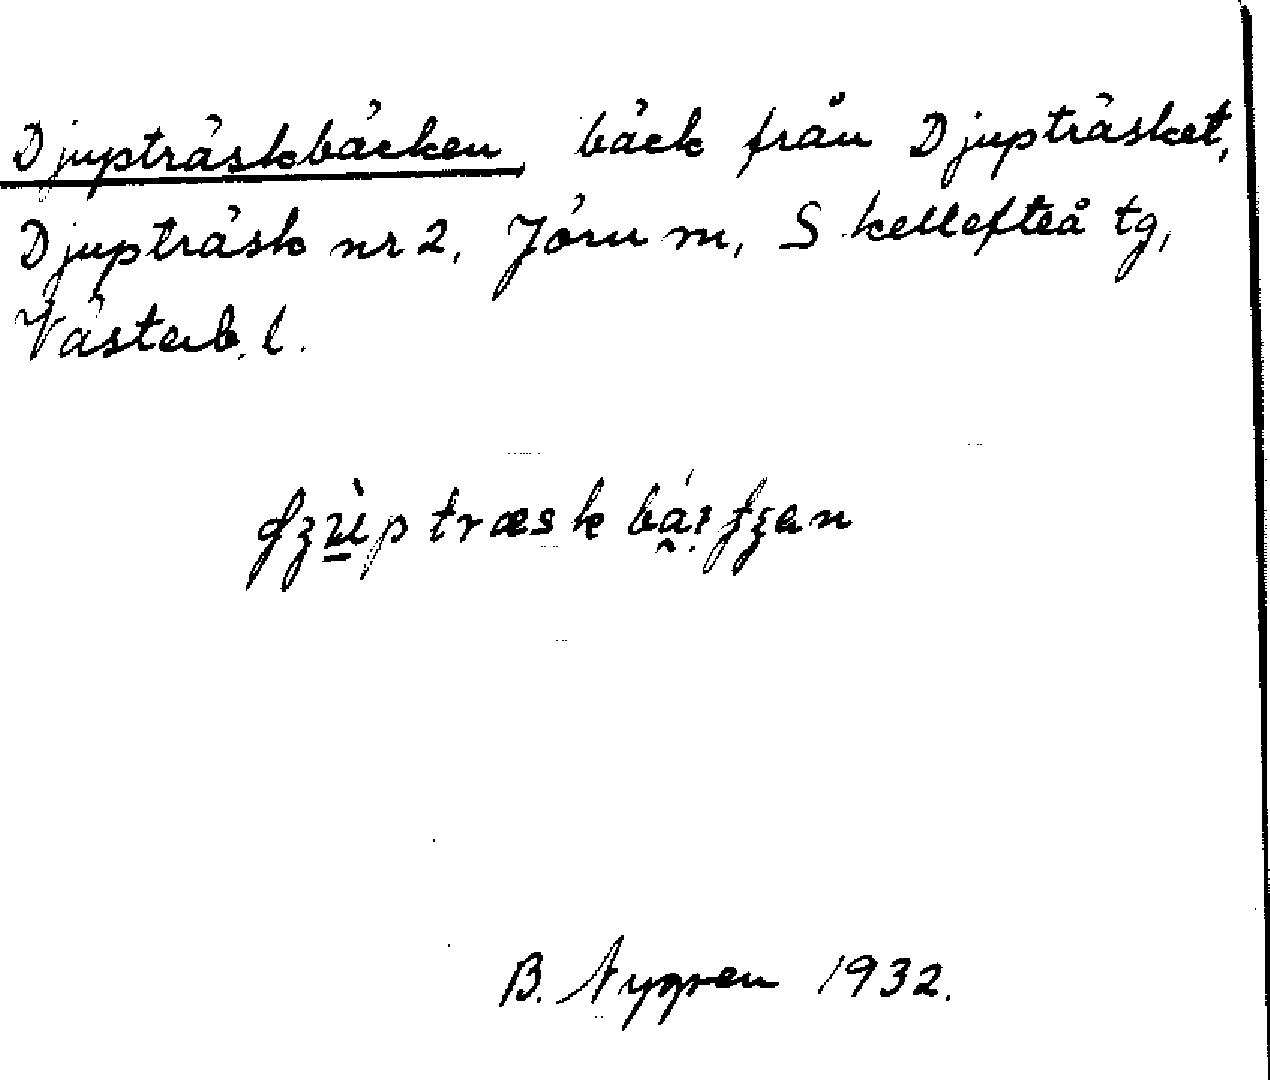 Djupträskbäcken, bäck från Djupträsket,
Djupträsk nr 2, Jörn m, Skellefteå tg,
Västerb. l.
B. Nygren 1932.